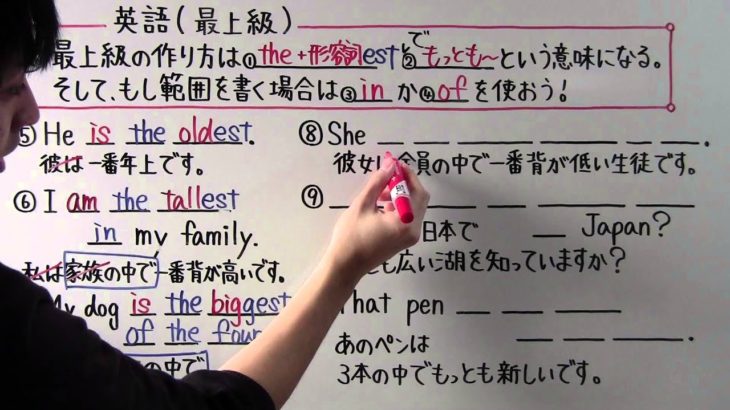 英語(最上級)
最上級の作り方は①the+形容詞estで②もっとも〜という意味になる。
そして、もし範囲を書く場合は③inか④ofを使おう!
⑤ He is the oldest.
彼は一番年上です。
⑥ I am the tallest
in my family.
私は家族の中で一番背が高いです。
My dog is the biggest
of the four
の中で
⑧ She
彼女は全員の中で一番背が低い生徒です。
⑨
日本で Japan?
も広い湖を知っていますか?
That pen
あのペンは
3本の中でもっとも新しいです。